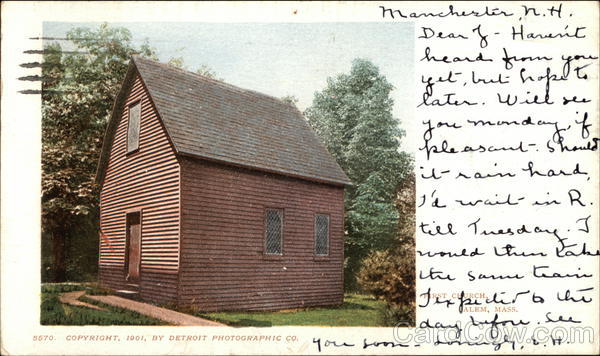 Manchester, N.H.
Dear Z - Haven't
heard from you
yet, but hope to
later. Will see
you Monday, if
pleasant. Should
it rain hard,
I'd wait in R.
till Tuesday. I
would then take
the same train
I expected to the
day before. See
you soon - Lovingly, L.H.
FIRST CHURCH,
SALEM, MASS.
5570. COPYRIGHT, 1901, BY DETROIT PHOTOGRAPHIC CO.
CardCow.com